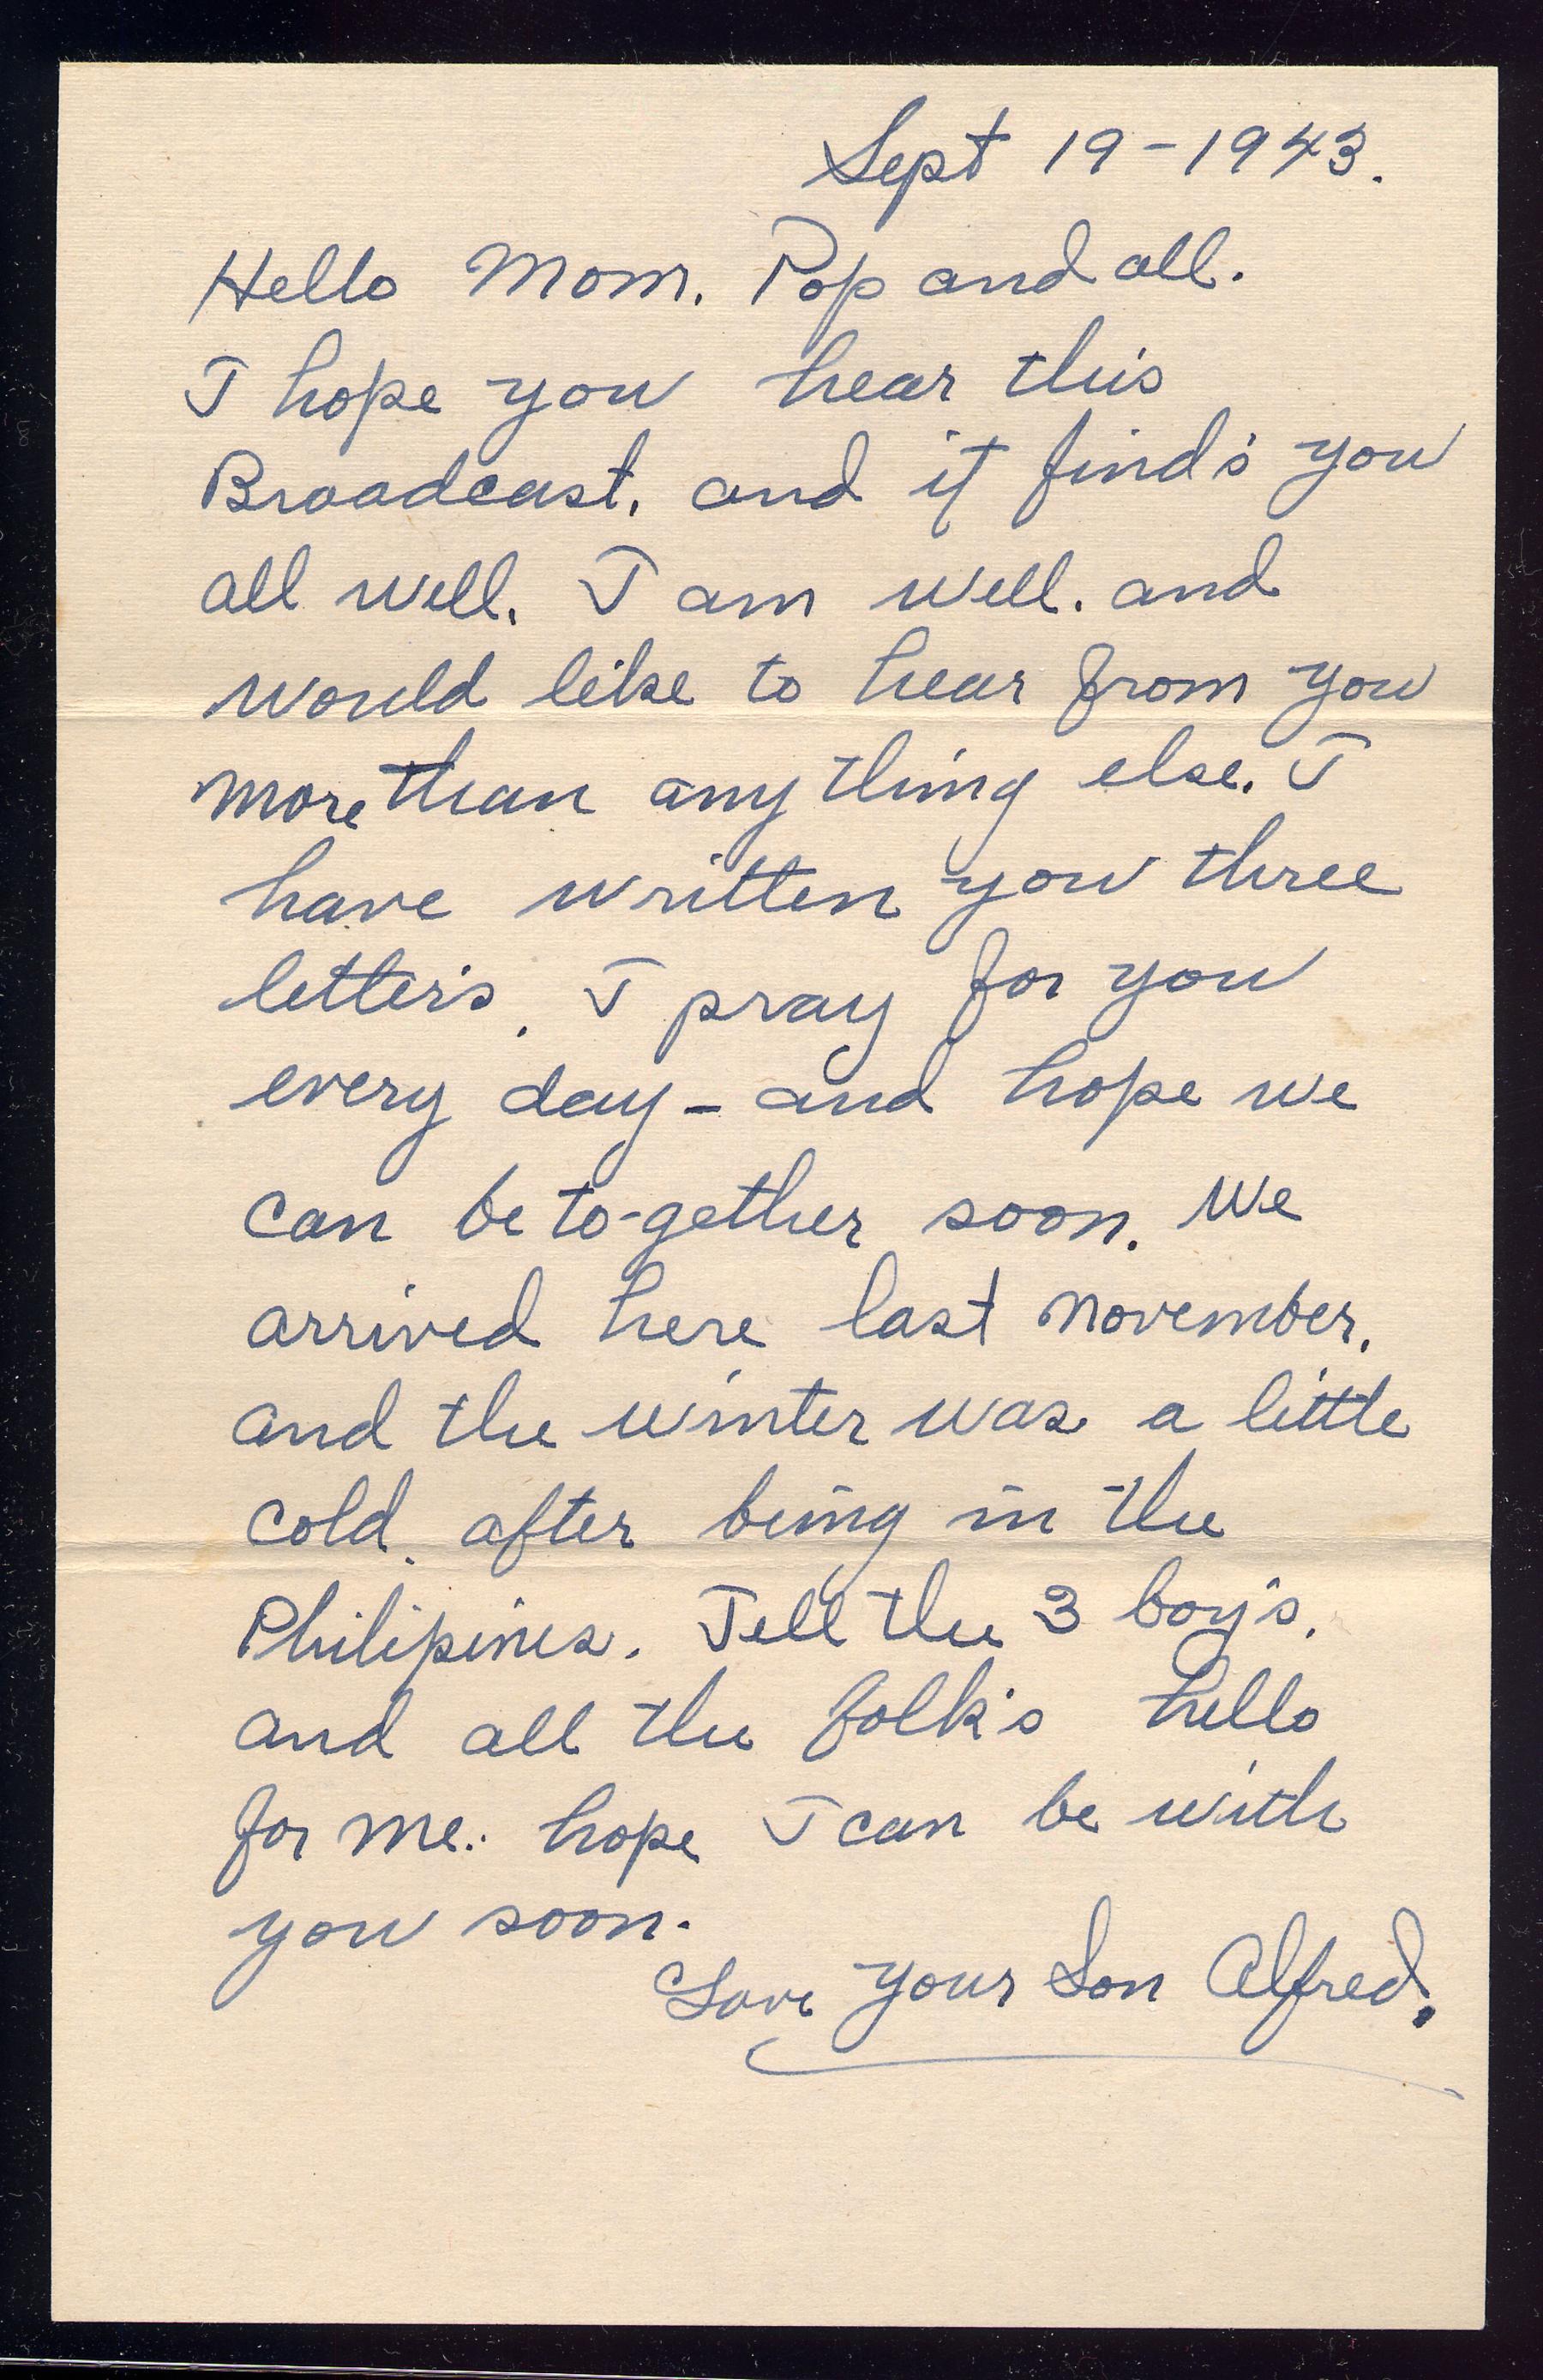 Sept 19-1943.
Hello Mom. Pop and all.
I hope you hear this
Broadcast. and it find's you
all well. I am well. and
would like to hear from you
more than any thing else. I
have written you three
letter's. I pray for you
every day - and hope we
can be to-gether soon. We
arrived here last November.
and the winter was a little
cold. after being in the
Philipines. Tell the 3 boy's.
and all the folk's hello
for me. hope I can be with
you soon.
Love your Son Alfred.